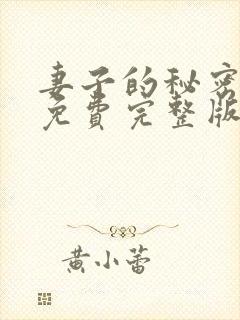 妻子的秘密
免费完整版
黄小蕾